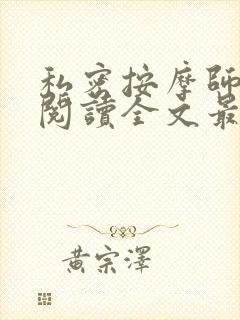 私密按摩師
閱讀全文最
黃宗澤